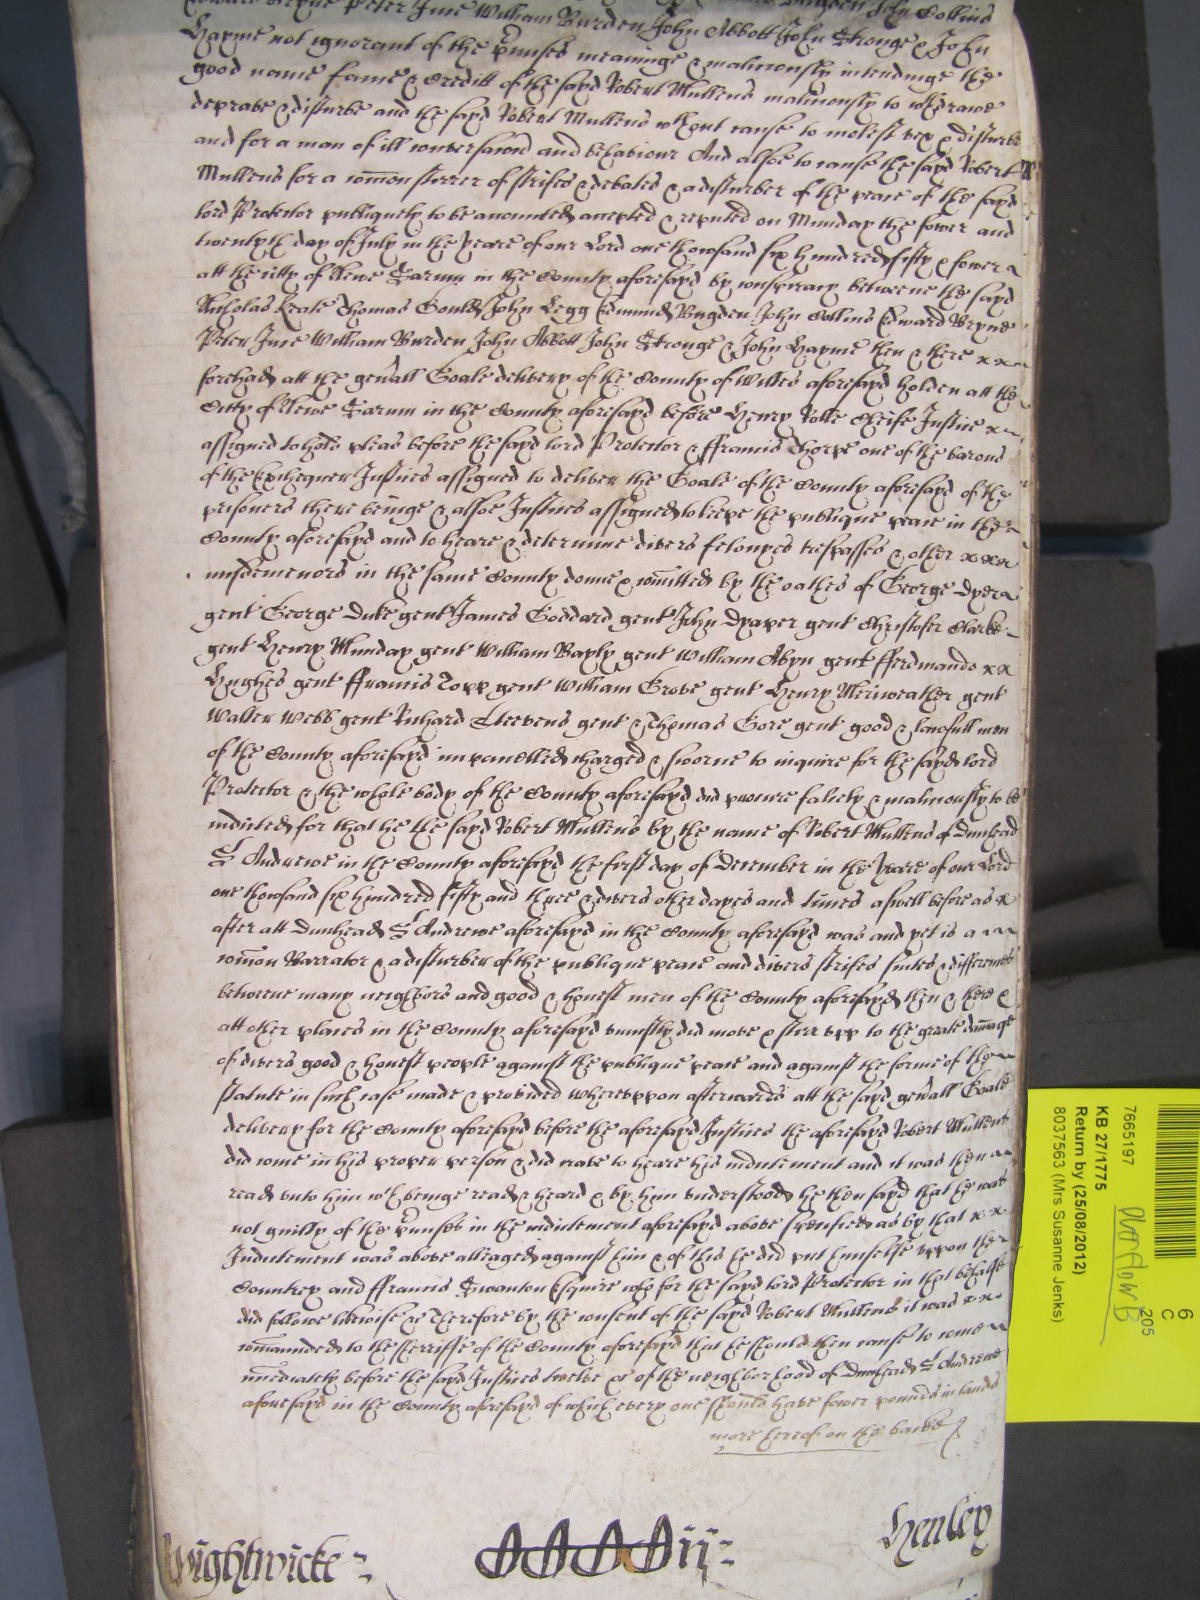 Edward Bryne Peter June William Burden John Abbott John Stronge & John
Hayme not ignorant of the p'misses meaninge & maliciously intendinge the
good name fame & Creditt of the sayd Robert Mullens maliciously to withdrawe
deprave & disturbe and the sayd Robert Mullens wthout cause to molest vex & disturbe
and for a man of ill conversacion and behaviour And alsoe to cause the sayd Robert
Mullens for a com̄on stirrer of strifes & debates & a disturber of the peace of the sayd
lord Protector publiquely to be accounted accepted & reputed on Munday the fower and
twentyth day of July in the yeare of our Lord one thowsand six hundred fifty & fower
att the citty of Newe Sarum in the County aforesayd by conspiracy betweene the sayd
Nicholas Keate Thomas Gould John Legg Edmund Bugden John Collins Edward Bryne
Peter June William Burden John Abbott John Stronge & John Hayme then & there x x
forehad att the gen'all Goale delivery of the County of Wiltes aforesayd holden att the
Citty of Newe Sarum in the County aforesayd before Henry Rolle Cheife Justice x
assigned to hold pleas before the sayd lord Protector & ffrancis Thorpe one of the barons
of the Exchequer Justices assigned to deliver the Goale of the County aforesayd of the
prisoners there beinge & alsoe Justices assigned to keepe the publique peace in the
County aforesayd and to heare & determine divers felonyes trespasses & other x x x
misdemenors in the same County donne & com̄itted by the oathes of George Dyer
gent George Duke gent James Goddard gent John Draper gent Christofer Clarke
gent Henry Munday gent William Bayly gent William Abyn gent fferdinando x x
Hughes gent ffrancis Topp gent William Grove gent Henry Meriweather gent
Walter Webb gent Richard Steevens gent & Thomas Gore gent good & lawfull men
of the County aforesayd impanelled charged & sworne to inquire for the sayd lord
Protector & the whole body of the County aforesayd did procure falsely & maliciously to be
indicted for that he the sayd Robert Mullens by the name of Robert Mullens of Dunhead
St Andrewe in the County aforesayd the first day of December in the yeare of our Lord
one thowsand six hundred fifty and three & divers other dayes and times aswell before as x
after att Dunhead St Andrewe aforesayd in the County aforesayd was and yet is a
com̄on Barrator & a disturber of the publique peace and divers strifes suites & differences
betweene many neighbors and good & honest men of the County aforesayd then & there &
att other places in the County aforesayd uniustly did move & stirr upp to the greate dam̄age
of divers good & honest people against the publique peace and against the forme of the
statute in such case made & provided whereuppon afterwards att the sayd gen'all Goale
delivery for the County aforesayd before the aforesayd Justices the aforesayd Robert Mullens
did come in his proper person & did crave to heare his indictement and it was then
read unto him wch beinge read & heard & by him understood he then sayd that he was
not guilty of the p'misses in the indictement aforesayd above specified as by that x x
Indictement was above alleaged against him & of this he did put himselfe uppon the
Countrey and ffrancis Swanton Esquire who for the sayd lord Protector in that behalfe
did followe likewise &c Therefore by the consent of the sayd Robert Mullens it was x x
com̄aunded to the Sherriffe of the County aforesayd that he should then cause to come
im̄ediately before the sayd Justices twelve &c of the neighborhood of Dunhead St Andrewe
aforesayd in the County aforesayd of which every one should have fower pounds in lands
more hereof on the backe
Wightwicke
Henley
7665197
KB 27/1775
Return by (25/08/2012)
8037563 (Mrs Susanne Jenks)
6
C
205